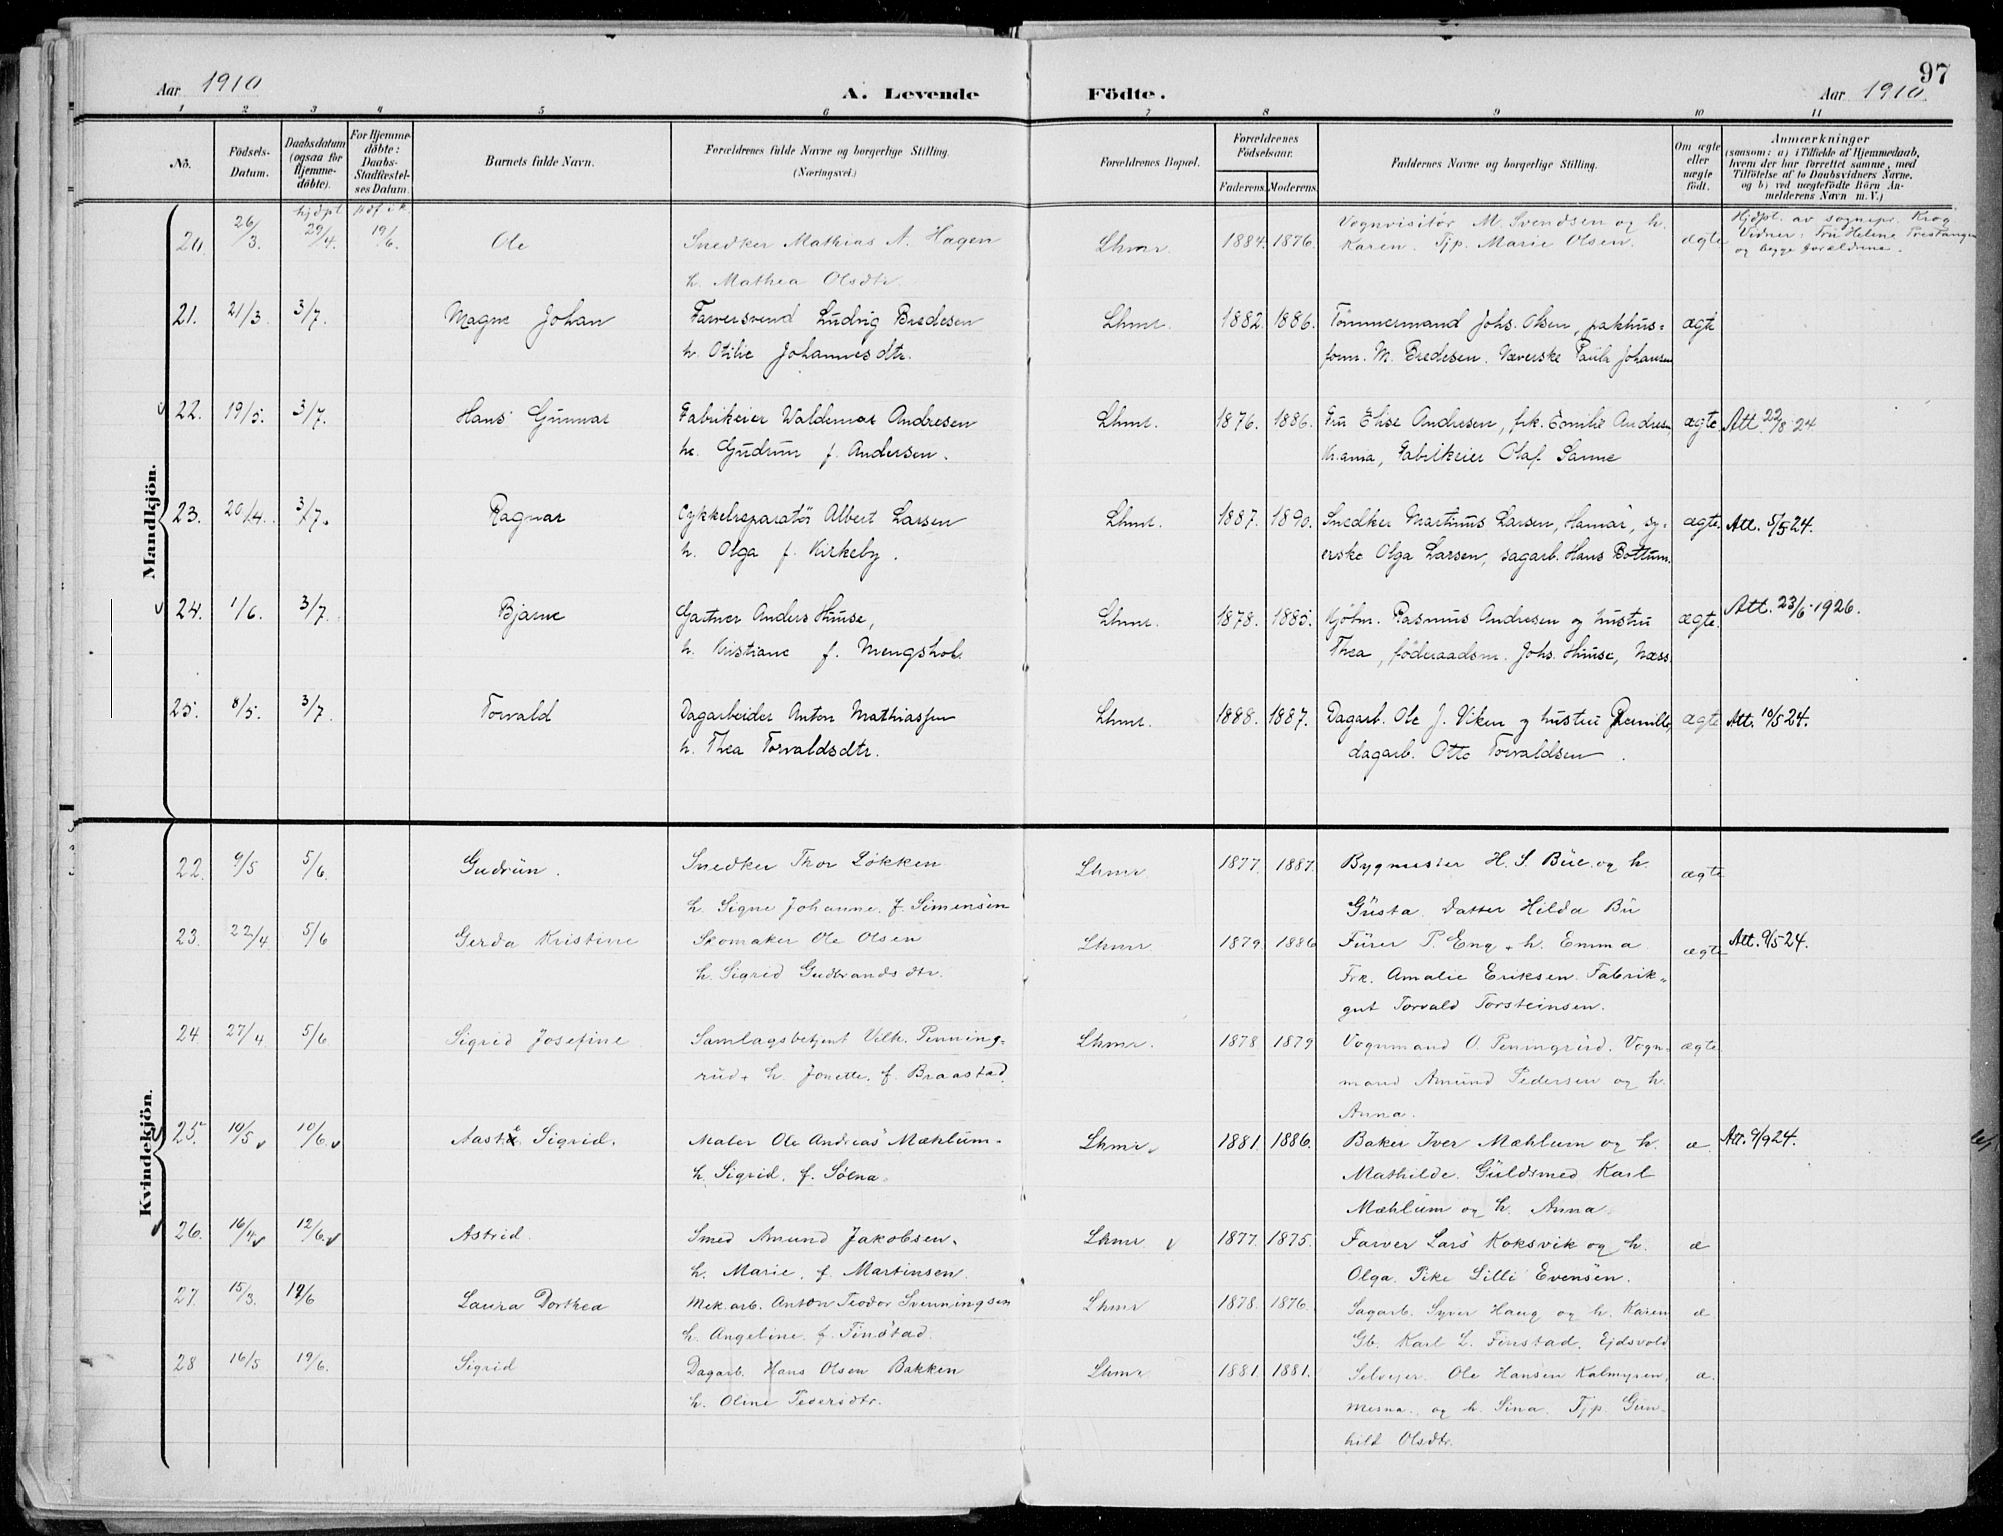 97
Aar 1910
A. Levende Födte.
Aar 1910.
1 2 3 4 5 6 7 8 9 10 11
Nö.
Födsels-
Datum.
Daabsdatum
(ogsaa for
Hjemme-
döbte).
For Hjemme-
döbte:
Daabs-
Stadfæstel-
ses Datum.
Barnets fulde Navn.
Forældrenes fulde Navne og borgerlige Stilling.
(Næringsvei.)
Forældrenes Bopæl.
Forældrenes
Födselsaar.
Faderens. Moderens.
Faddernes Navne og borgerlige Stilling.
Om ægte
eller
uægte
födt.
Anmærkninger
(saasom: a) i Tilfælde af Hjemmedaab,
hvem der har forrettet samme, med
Tilföielse af to Daabsvidners Navne.
og b) ved uægtefödte Börn An-
melderens Navn m. V.)
Mandkjön.
20. 26/3. hjdpt 29/4. stdf i k. 19/6. Ole Snedker Mathias A. Hagen Lhmr. 1884. 1876. Vognvisitør M. Svendsen og h. ægte Hjdpt. av sognepr. Krog
h. Mathea Olsdtr. Karen. Tjp. Marie Olsen. Vidner: Fru Helene Prestangen
og begge forældrene.
21. 21/3. 3/7. Magne Johan Farversvend Ludvig Bredesen Lhmr. 1882. 1886. Tømmermand Johs. Olsen, pakhus- ægte
h. Otilie Johannesdtr. form. M. Bredesen. Væverske Paula Johansen
22. 19/5. 3/7. Hans Gunnar Fabrikeier Waldemar Andresen Lhmr. 1876. 1886. Fru Elise Andresen, frk. Emilie Andresen, ægte. Att. 22/8 24
h. Gudrun f. Andersen. Kr.ania, Fabrikeier Olaf Sanne
23. 20/4. 3/7. Ragnar Cykkelreparatør Albert Larsen Lhmr. 1887. 1890. Snedker Martinus Larsen, Hamar, sy- ægte. Att. 5/5 24.
h. Olga f. Kirkeby. erske Olga Larsen, sagarb. Hans Bottum.
24. 1/6. 3/7. Bjarne Gartner Anders Huuse, Lhmr. 1878. 1885. Kjøbm. Rasmus Andresen og hustru ægte. Att. 23/6 1926.
h. Kristiane f. Mengshol. Thea, føderaadsm. Johs. Huuse, Næss.
25. 8/5. 3/7. Torvald Dagarbeider Anton Mathiassen Lhmr. 1888. 1887. Dagarb. Ole J. Viken og hustru Pernille, ægte Att. 10/5 24.
h. Thea Torvaldsdtr. dagarb. Otto Torvaldsen.
Kvindekjön.
22. 9/5 5/6. Gudrun. Snedker Thor Løkken Lhmr. 1877. 1887. Bygmester H. S. Bue og h. ægte
h. Signe Johanne, f. Simensen Gusta. Datter Hilda Bu
23. 22/4 5/6 Gerda Kristine Skomaker Ole Olsen Lhmr. 1879. 1886 Furer P. Eng + h. Emma. ægte Att. 9/5 24.
h. Sigrid Gudbrandsdtr. Frk. Amalie Eriksen. Fabrik-
gut Torvald Torsteinsen.
24 27/4 5/6 Sigrid Josefine Samlagsbetjent Vilh. Penning- Lhmr. 1878 1879 Vognmand O. Penningrud. Vogn- ægte
rud + h. Jonette, f. Braastad. mand Amund Pedersen og h.
Anna.
25. 10/5 10/6. Aasta Sigrid. Maler Ole Andreas Mæhlum. Lhmr. 1881. 1886. Baker Iver Mæhlum og h. æ. Att. 9/9 24.
h. Sigrid, f. Solna. Mathilde. Guldsmed Karl
Mæhlum og h. Anna.
26. 16/4 12/6. Astrid. Smed Amund Jakobsen. Lhmr 1877. 1875. Farver Lars Koksvik og h. æ
h. Marie, f. Martinsen. Olga. Pike Lilli Evensen.
27. 15/3. 19/6 Laura Dorthea Mek.arb. Anton Teodor Svenningsen Lhmr 1878. 1876. Sagarb. Syver Haug og h. Karen æ
h. Angeline, f. Finstad. Gb. Karl L. Finstad, Ejdsvold
28 16/5 19/6. Sigrid Dagarb. Hans Olsen Bakken Lhmr 1881. 1881. Selvejer Ole Hansen Kalmyren, æ.
h. Oline Pedersdtr. Mesna, og h. Sina. Tjp. Gun-
hild Olsdtr.